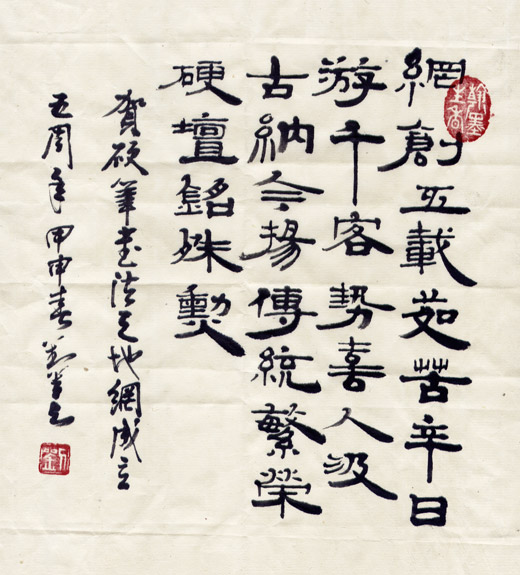 翰墨生香
網創五載茹苦辛日
游千客勢喜人汲
古納今揚傳統繁榮
硬壇銘殊勳
賀硬筆書法天地網成立
五周年甲申春
劉